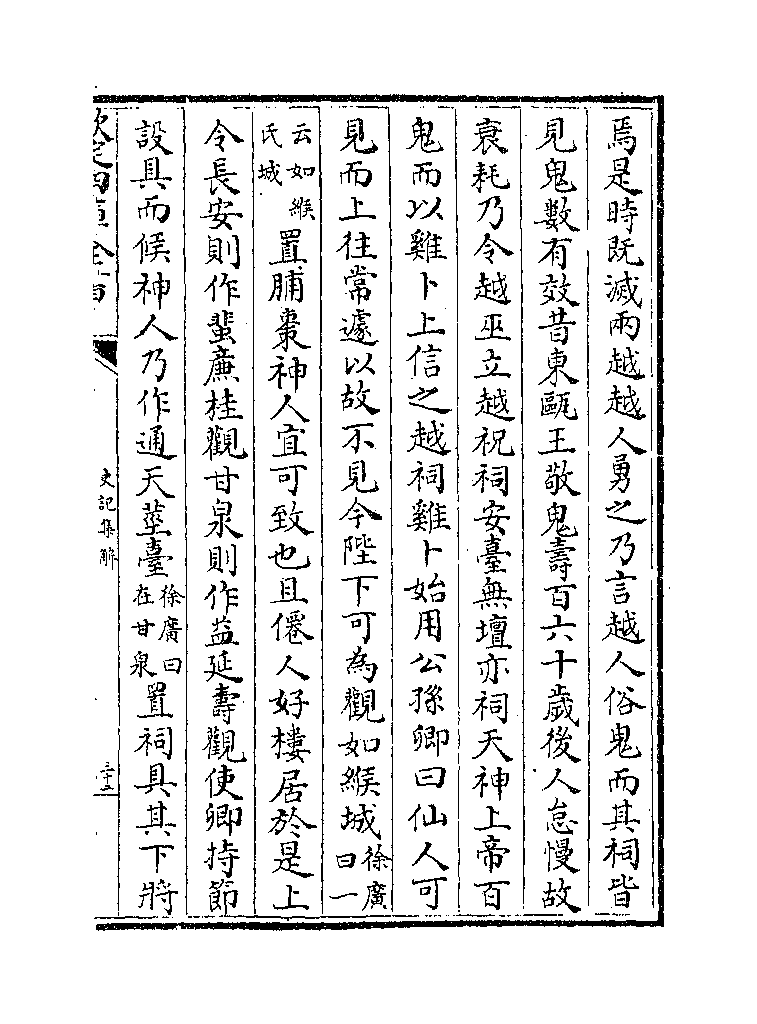 焉是時既滅兩越越人勇之乃言越人俗鬼而其祠皆
見鬼數有效昔東甌王敬鬼壽百六十歲後人怠慢故
衰耗乃令越巫立越祝祠安臺無壇亦祠天神上帝百
鬼而以雞卜上信之越祠雞卜始用公孫卿曰仙人可
見而上往常遽以故不見今陛下可為觀如緱城徐廣曰一
云如緱氏城置脯棗神人宜可致也且僊人好樓居於是上
令長安則作蜚廉桂觀甘泉則作益延壽觀使卿持節
設具而候神人乃作通天莖臺徐廣曰在甘泉置祠具其下將
欽定四庫全書
史記集解
三十三